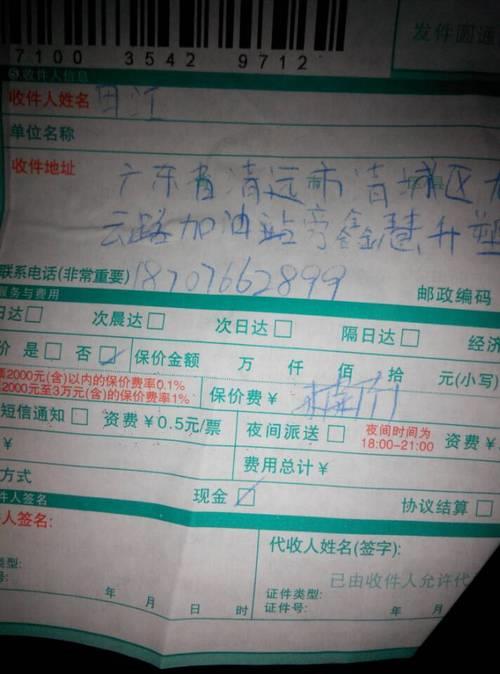 7100 3542 9712
发件圆通
收件人信息
收件人姓名 田江
单位名称
收件地址 广东省清远市清城区
云路加油站旁鑫慧升塑
联系电话(非常重要) 18707662899 邮政编码
服务与费用
日达 次晨达 次日达 隔日达 经济
价 是 否 保价金额 万 仟 佰 拾 元(小写)
票2000元(含)以内的保价费率0.1%
2000元至3万元(含)的保价费率1%
保价费¥
短信通知 资费¥0.5元/票 夜间派送 夜间时间为 18:00-21:00 资费¥
¥ 费用总计¥
方式 现金 协议结算
件人签名
人签名: 代收人姓名(签字):
已由收件人允许代
类型: 证件类型:
号: 证件号:
年 月 日 时 年 月